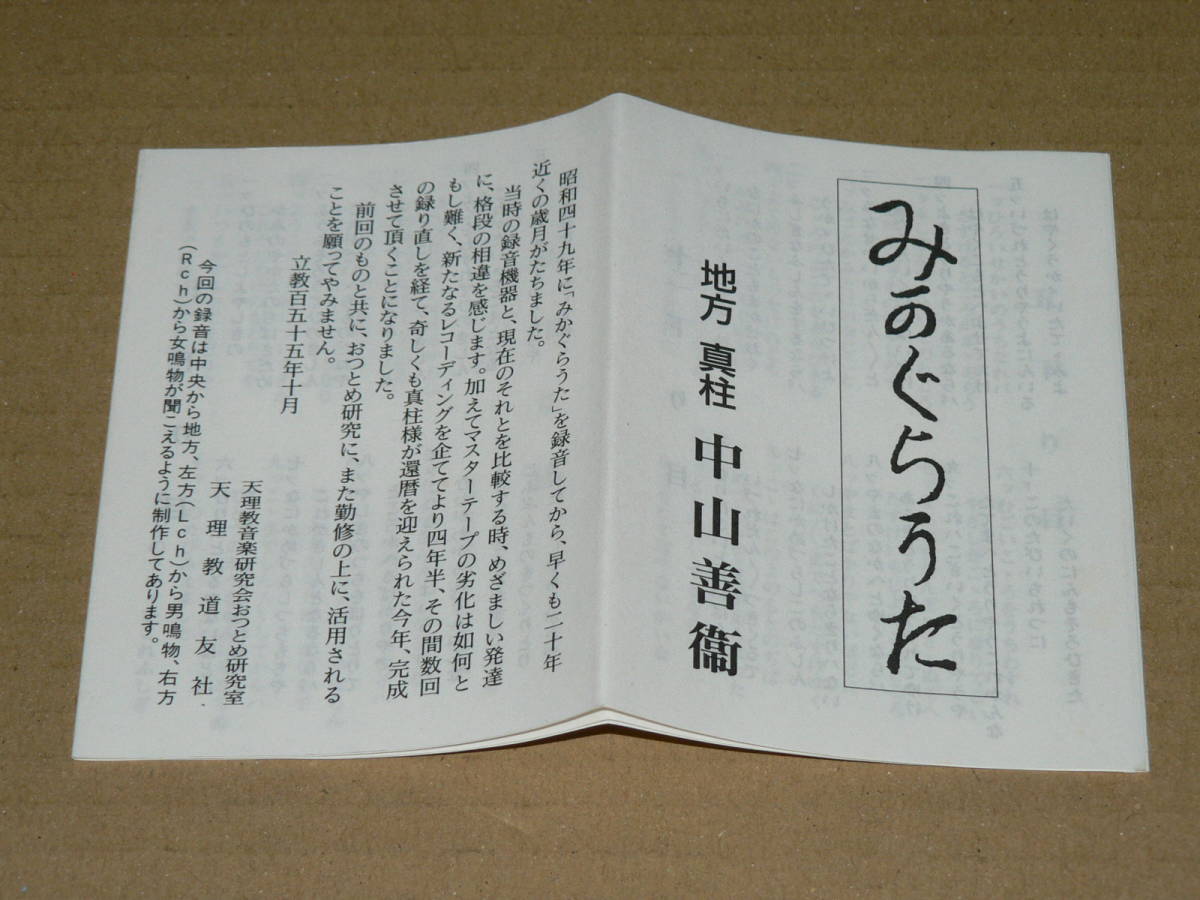 みかぐらうた
地方 真柱 中山善衞
昭和四十九年に「みかぐらうた」を録音してから、早くも二十年
近くの歳月がたちました。
当時の録音機器と、現在のそれとを比較する時、めざましい発達
に、格段の相違を感じます。加えてマスターテープの劣化は如何と
もし難く、新たなるレコーディングを企ててより四年半、その間数回
の録り直しを経て、奇しくも真柱様が還暦を迎えられた今年、完成
させて頂くことになりました。
前回のものと共に、おつとめ研究に、また勤修の上に、活用される
ことを願ってやみません。
立教百五十五年十月
天理教音楽研究会おつとめ研究室
天理教道友社
今回の録音は中央から地方、左方(Lch)から男鳴物、右方
(Rch)から女鳴物が聞こえるように制作してあります。